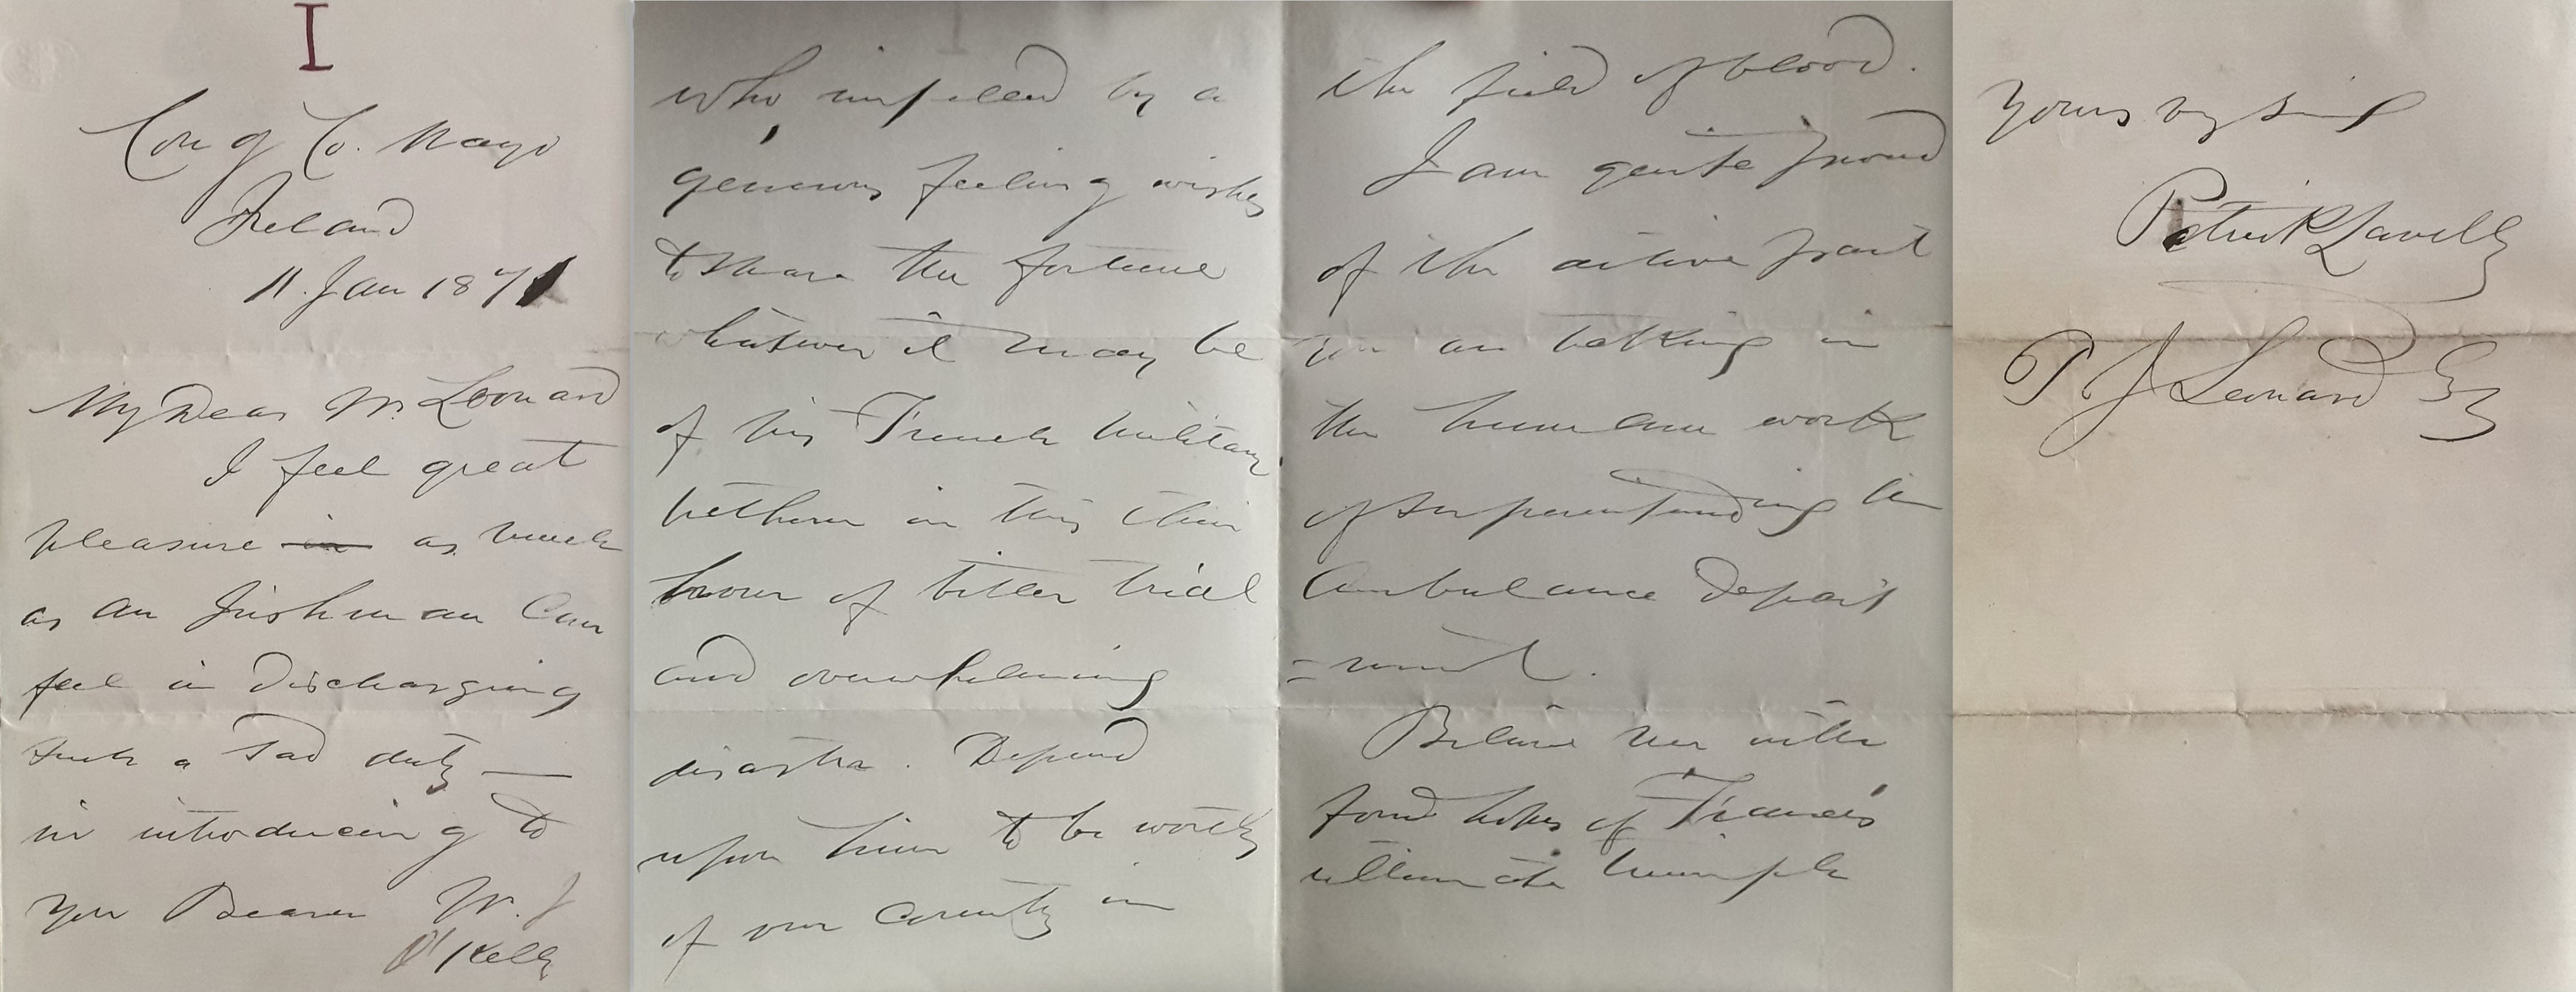 I
Cong Co. Mayo
Ireland
11. Jan 1871
My Dear Mr. Leonard
I feel great
pleasure in as much
as an Irishman can
feel in discharging
such a sad duty —
in introducing to
you Bearer W. J
O'Kelly
who impelled by a
generous feeling wishes
to share the fortune
whatever it may be
of his French military
brethren in this their
hour of bitter trial
and overwhelming
disaster. Depend
upon him to be worthy
of our County in
the field of blood.
I am quite proud
of the active part
you are taking in
the humane work
of superintending the
Ambulance depart
=ment.
Believe me with
fond hopes of France's
ultimate triumph
Yours vy sinc
Patrick Lavelle
P J Leonard Esq